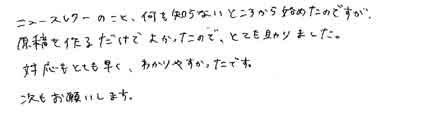 ニュースレターのこと、何も知らないところから始めたのですが、
原稿を作るだけでよかったので、とても助かりました。
対応もとても早く、わかりやすかったです。
次もお願いします。